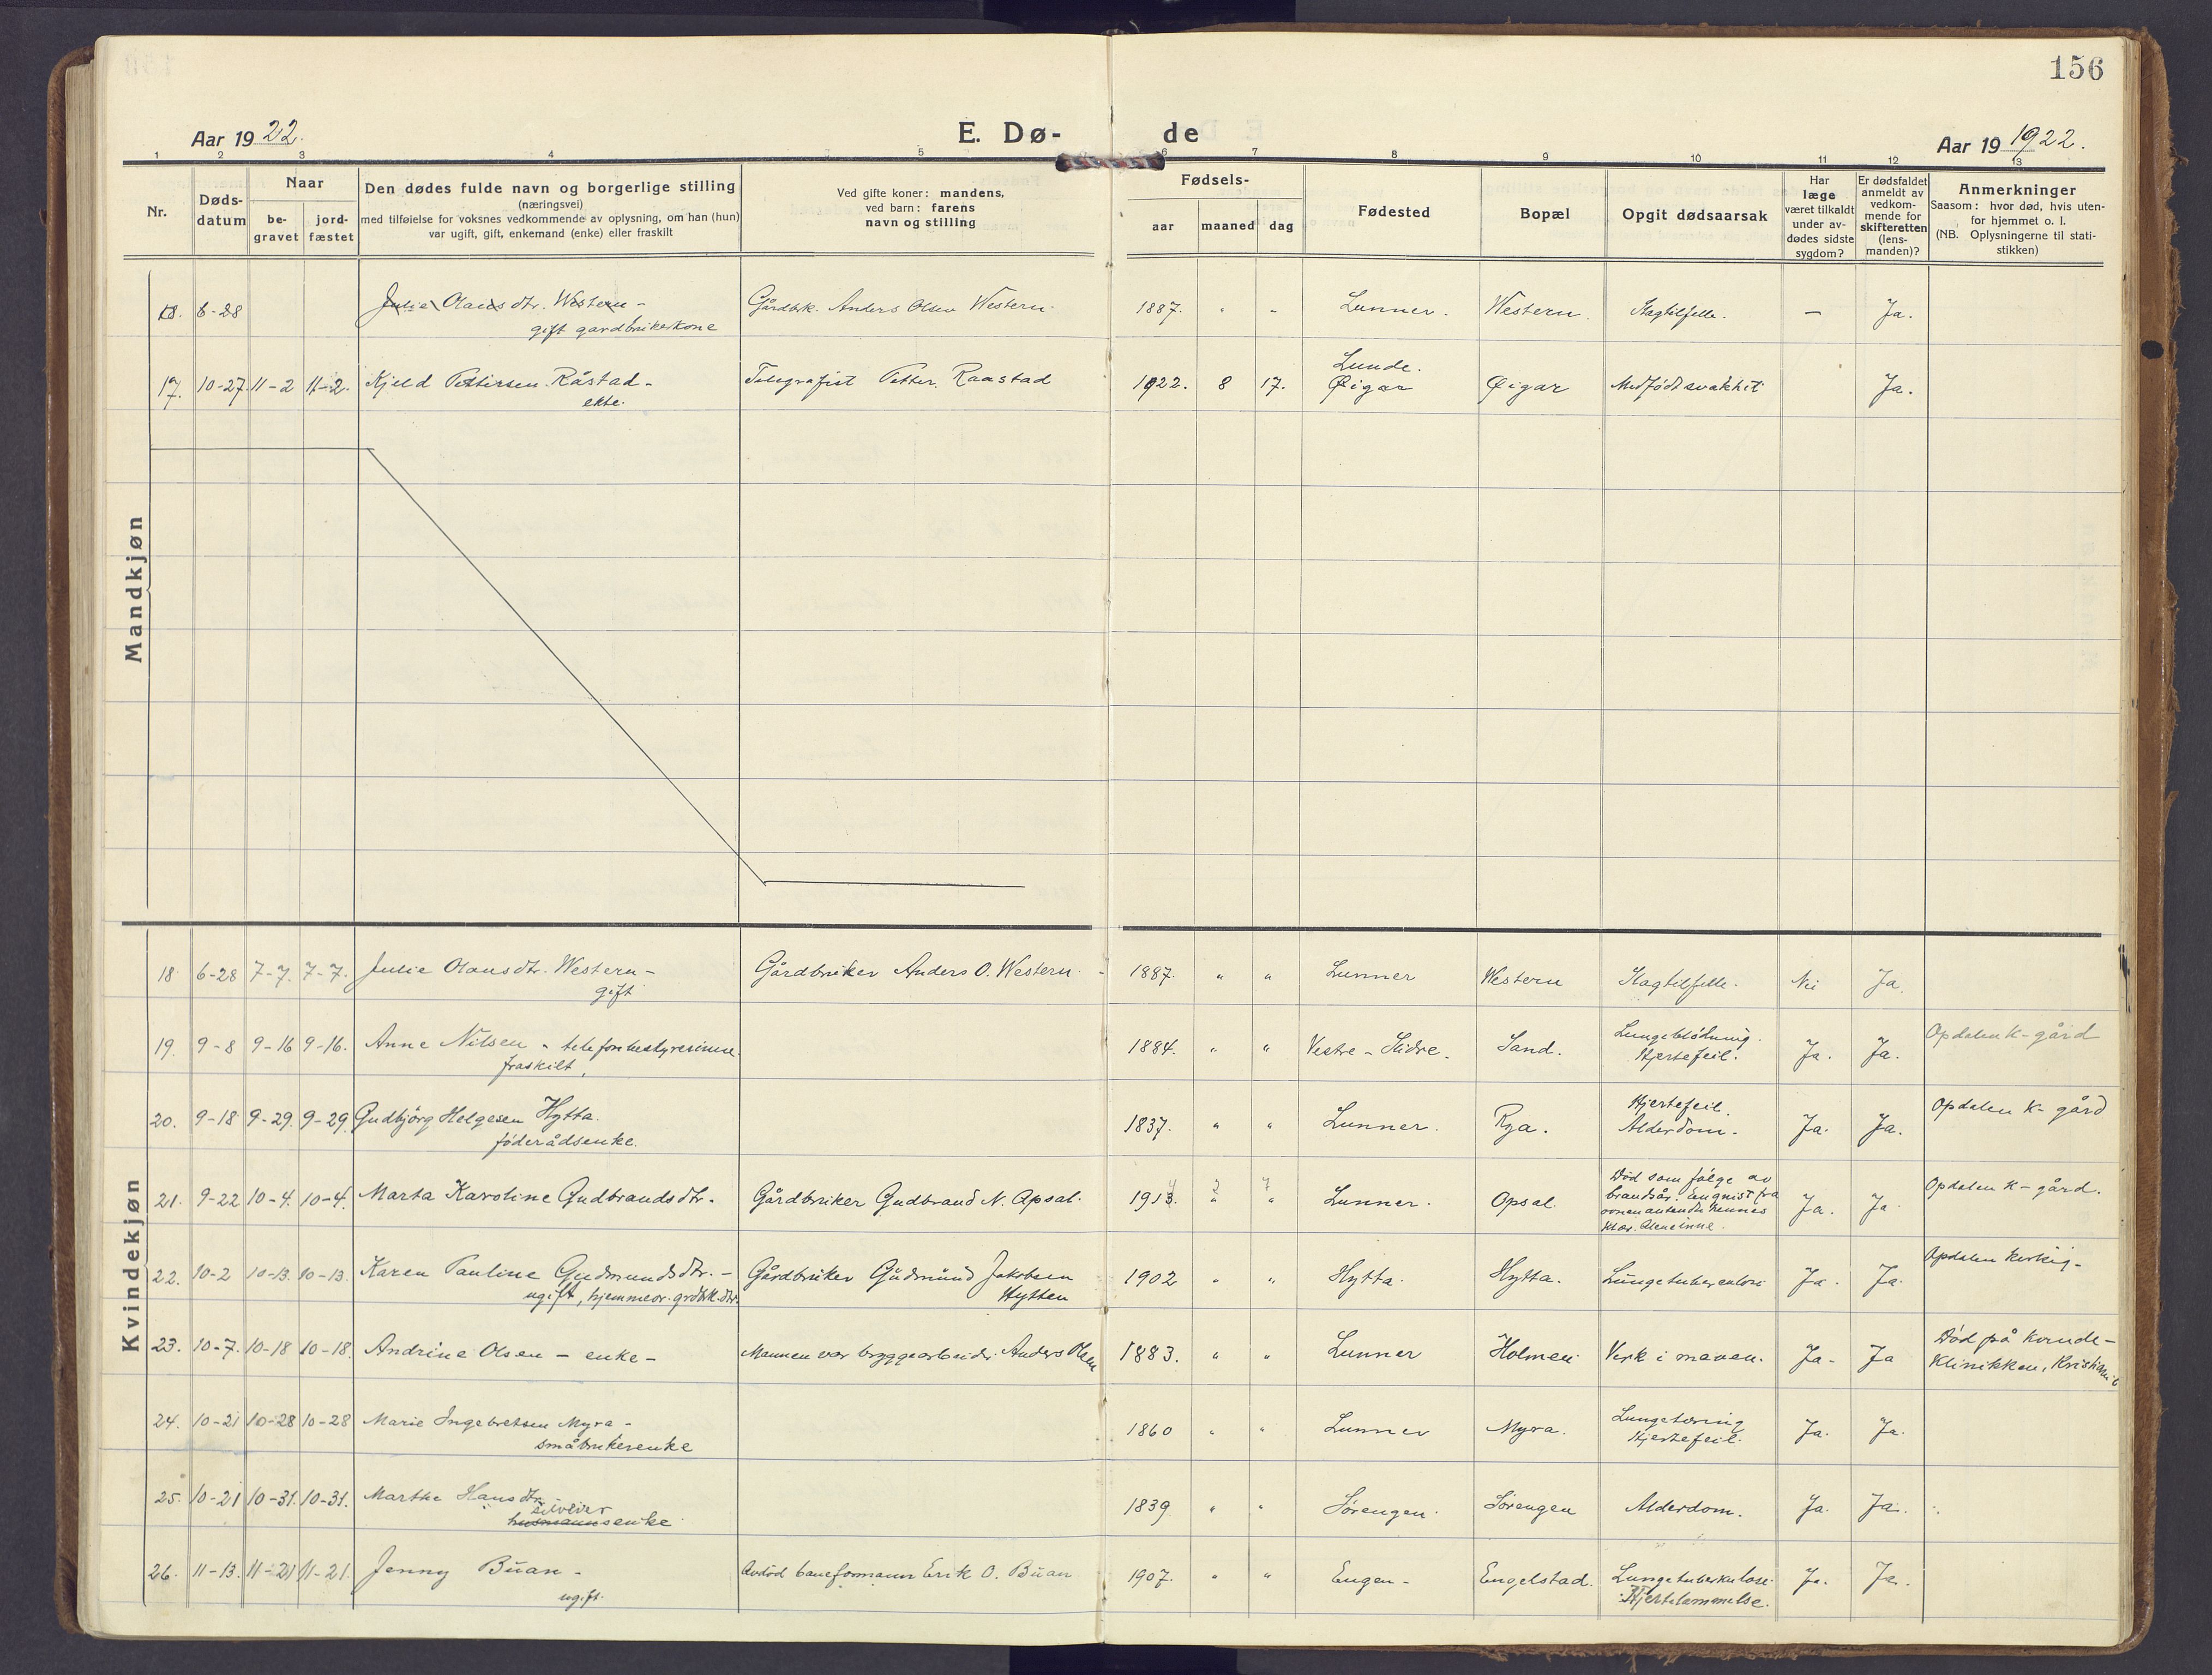 156
Aar 1922.
E. Dø-
de
Aar 19 1922.
1 2 3 4 5 6 7 8 9 10 11 12 13
Nr.
Døds-
datum
Naar
be-
gravet
jord-
fæstet
Den dødes fulde navn og borgerlige stilling
(næringsvei)
med tilføielse for voksnes vedkommende av oplysning, om han (hun)
var ugift, gift, enkemand (enke) eller fraskilt
Ved gifte koner: mandens,
ved barn: farens
navn og stilling
Fødsels-
aar
maaned
dag
Fødested
Bopæl
Opgit dødsaarsak
Har
læge
været tilkaldt
under av-
dødes sidste
sygdom?
Er dødsfaldet
anmeldt av
vedkom-
mende for
skifteretten
(lens-
manden)?
Anmerkninger
Saasom: hvor død, hvis uten-
for hjemmet o. l.
(NB. Oplysningerne til stati-
stikken)
Mandkjøn
18. 6-28 Julie Olausdtr. Western - Gårdbrk. Anders Olsen Western. 1887. " " Lunner. Western. Slagtilfelle. — Ja.
gift gardbrukerkone
Lunde.
17. 10-27. 11-2 11-2. Kjeld Pettersen Råstad - Telegrafist Petter Raastad 1922. 8 17. Øigar Øigar Medfødt svakhet Ja.
ekte.
Kvindekjøn
18 6-28 7-7. 7-7. Julie Olausdtr. Western - Gårdbruker Anders O. Western. 1887. " " Lunner Western Slagtilfelle. Nei Ja.
gift
19. 9-8 9-16 9-16. Anne Nilsen - telefonbestyrerinne. 1884. " " Vestre-Slidre. Sand. Lungeblødning. Ja. Ja. Opdalen K-gård
fraskilt, Hjertefeil.
20. 9-18 9-29. 9-29. Gudbjörg Helgesen Hytta. 1837. " " Lunner. Rya. Hjertefeil. Ja. Ja. Opdalen K-gård
föderådsenke. Alderdom.
21. 9-22 10-4. 10-4. Marta Karoline Gudbrandsdtr. Gårdbruker Gudbrand N. Opsal. 1914 2 7 Lunner. Opsal. Död som fölge av Ja. Ja. Opdalen K-gård.
brandsår. gnist fra
ovnen antendte hennes
klær. Alene inne.
22. 10-2 10-13. 10-13. Karen Pauline Gudmundsdtr. - Gårdbruker Gudmund Jakobsen 1902 " " Hytta. Hytta. Lungetuberculose Ja. Ja.
ugift, hjemmev. grdbrk. dtr. Hytten
23. 10-7. 10-18 10-18. Andrine Olsen - enke - Mannen var bryggearbeider Anders Olsen 1883. " " Lunner Holmen Verk i maven. Ja. Ja Död på kvinde-
klinikken, Kristiania
24. 10-21 10-28 10-28 Marie Ingebretsen Myra - 1860 " " Lunner Myra. Lungetæring Ja. Ja.
småbrukerenke Hjertefeil.
25. 10-21 10-31. 10-31. Marthe Hansdtr. 1839 " " Sörengen. Sörengen Alderdom. Ja. Ja.
husmannsenke
26. 11-13. 11-21 11-21. Jenny Buan - Avdöd baneformann Erik O. Buan 1907. " " Engen - Engelstad. Lungetuberkulose Ja. Ja.
ugift. Hjertelammelse.